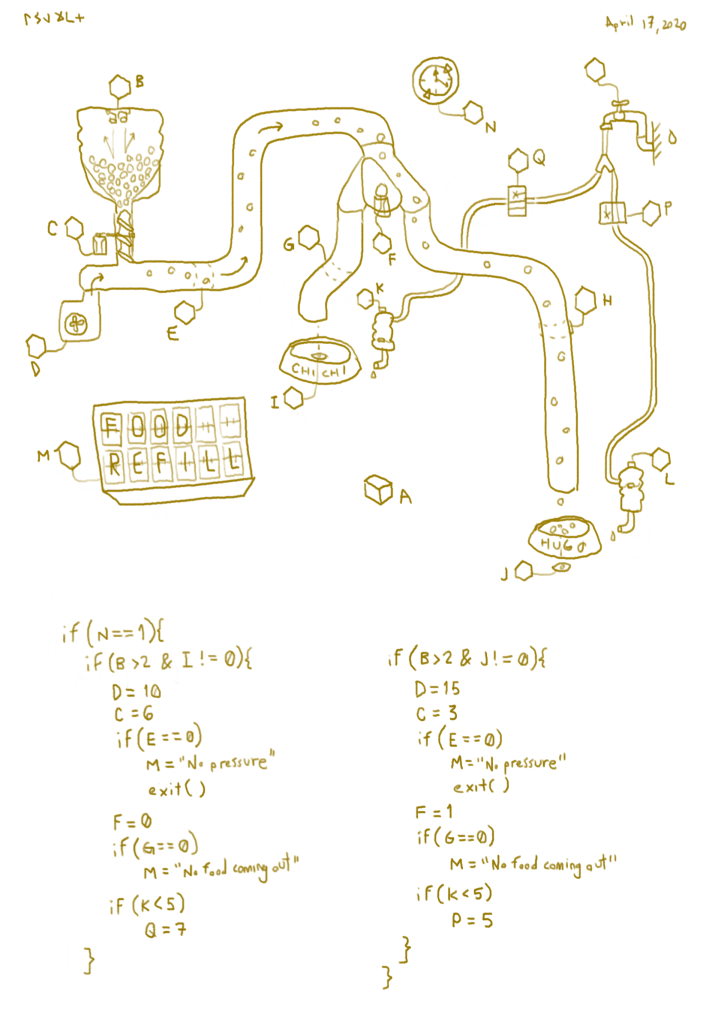 April 17, 2020
B
N
Q
C
P
G
F
K
H
E
D
CHICHI
I
FOOD
REFILL
M
A
L
HUGO
J
if (N==1){
if (B>2 & I != 0){
D = 10
C = 6
if (E==0)
M = "No pressure"
exit()
F = 0
if (G==0)
M = "No food coming out"
if (K<5)
Q = 7
}
if (B>2 & J != 0){
D = 15
C = 3
if (E==0)
M = "No pressure"
exit()
F = 1
if (G==0)
M = "No food coming out"
if (K<5)
P = 5
}
}